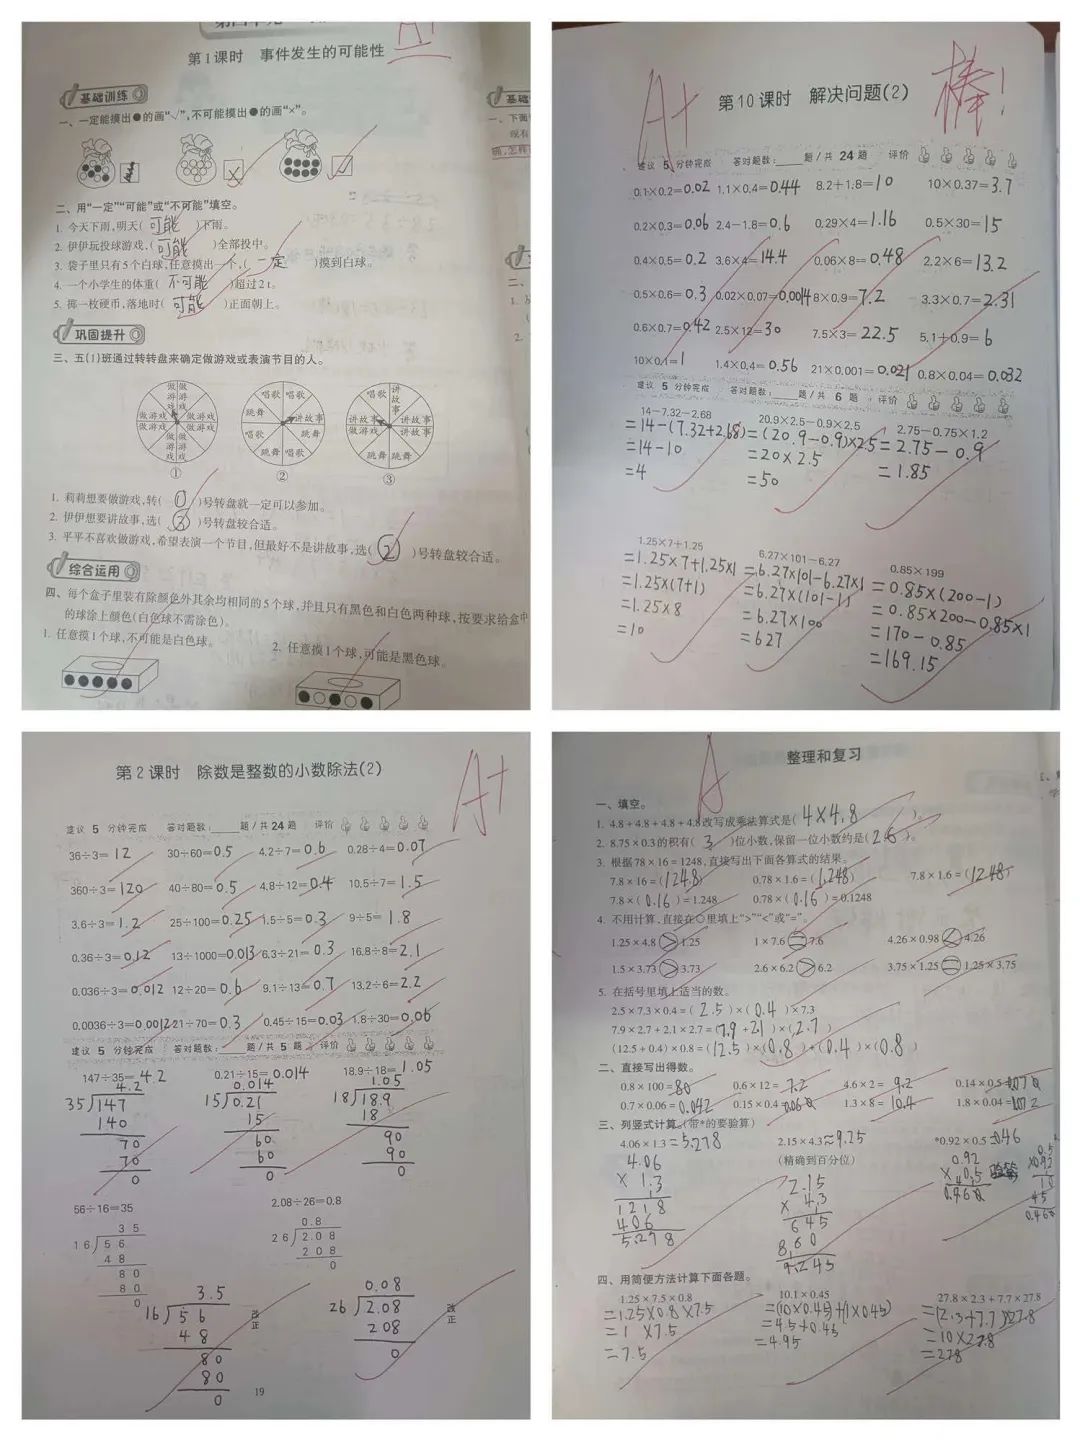 第1课时 事件发生的可能性
A+
基础训练
一、一定能摸出●的画“√”,不可能摸出●的画“×”。
二、用“一定”“可能”或“不可能”填空。
1. 今天下雨,明天(可能)下雨。
2. 伊伊玩投球游戏,(可能)全部投中。
3. 袋子里只有5个白球,任意摸出一个,(一定)摸到白球。
4. 一个小学生的体重(不可能)超过2 t。
5. 掷一枚硬币,落地时(可能)正面朝上。
巩固提升
三、五(1)班通过转转盘来确定做游戏或表演节目的人。
做游戏 做游戏 做游戏 做游戏 做游戏 做游戏 做游戏 做游戏
唱歌 唱歌 跳舞 讲故事 唱歌 跳舞 跳舞 唱歌
唱歌 讲故事 讲故事 讲故事 讲故事 讲故事 跳舞 跳舞
① ② ③
1. 莉莉想要做游戏,转(①)号转盘就一定可以参加。
2. 伊伊想要讲故事,选(③)号转盘较合适。
3. 平平不喜欢做游戏,希望表演一个节目,但最好不是讲故事,选(②)号转盘较合适。
综合运用
四、每个盒子里装有除颜色外其余均相同的5个球,并且只有黑色和白色两种球,按要求给盒中
的球涂上颜色(白色球不需涂色)。
1. 任意摸1个球,不可能是白色球。
2. 任意摸1个球,可能是黑色球。
A+
第10课时 解决问题(2)
棒!
建议 5 分钟完成 答对题数:____题/共 24 题 评价
0.1×0.2=0.02 1.1×0.4=0.44 8.2+1.8=10 10×0.37=3.7
0.2×0.3=0.06 2.4-1.8=0.6 0.29×4=1.16 0.5×30=15
0.4×0.5=0.2 3.6×4=14.4 0.06×8=0.48 2.2×6=13.2
0.5×0.6=0.3 0.02×0.07=0.0014 8×0.9=7.2 3.3×0.7=2.31
0.6×0.7=0.42 2.5×12=30 7.5×3=22.5 5.1+0.9=6
10×0.1=1 1.4×0.4=0.56 21×0.001=0.021 0.8×0.04=0.032
建议 5 分钟完成 答对题数:____题/共 6 题 评价
14-7.32-2.68 20.9×2.5-0.9×2.5 2.75-0.75×1.2
=14-(7.32+2.68) =(20.9-0.9)×2.5 =2.75-0.9
=14-10 =20×2.5 =1.85
=4 =50
1.25×7+1.25 6.27×101-6.27 0.85×199
=1.25×7+1.25×1 =6.27×101-6.27×1 =0.85×(200-1)
=1.25×(7+1) =6.27×(101-1) =0.85×200-0.85×1
=1.25×8 =6.27×100 =170-0.85
=10 =627 =169.15
第2课时 除数是整数的小数除法(2)
A+
建议 5 分钟完成 答对题数:____题/共 24 题 评价
36÷3=12 30÷60=0.5 4.2÷7=0.6 0.28÷4=0.07
360÷3=120 40÷80=0.5 4.8÷12=0.4 10.5÷7=1.5
3.6÷3=1.2 25÷100=0.25 1.5÷5=0.3 9÷5=1.8
0.36÷3=0.12 13÷1000=0.013 6.3÷21=0.3 16.8÷8=2.1
0.036÷3=0.012 12÷20=0.6 9.1÷13=0.7 13.2÷6=2.2
0.0036÷3=0.0012 21÷70=0.3 0.45÷15=0.03 1.8÷30=0.06
建议 5 分钟完成 答对题数:____题/共 5 题 评价
147÷35=4.2 0.21÷15=0.014 18.9÷18=1.05
4.2 0.014 1.05
35 147 15 0.21 18 18.9
140 15 18
70 60 90
70 60 90
0 0 0
56÷16=35 2.08÷26=0.8
35 0.8
16 56 26 2.08
48 208
80 0
80
0
3.5 0.08
16 56 改正 26 2.08 改正
48 208
80 0
80
0
19
A
整理和复习
一、填空。
1. 4.8+4.8+4.8+4.8改写成乘法算式是(4×4.8)。
2. 8.75×0.3的积有(3)位小数,保留一位小数约是(2.6)。
3. 根据78×16=1248,直接写出下面各算式的结果。
7.8×16=(124.8) 0.78×1.6=(1.248) 7.8×1.6=(12.48)
7.8×(0.16)=1.248 0.78×(0.16)=0.1248
4. 不用计算,直接在○里填上“>”“<”或“=”。
1.25×4.8>1.25 1×7.6=7.6 4.26×0.98<4.26
1.5×3.73>3.73 2.6×6.2>6.2 3.75×1.25=1.25×3.75
5. 在括号里填上适当的数。
2.5×7.3×0.4=(2.5)×(0.4)×7.3
7.9×2.7+2.1×2.7=(7.9+2.1)×(2.7)
(12.5+0.4)×0.8=(12.5)×(0.8)+(0.4)×(0.8)
二、直接写出得数。
0.8×100=80 0.6×12=7.2 4.6×2=9.2 0.14×0.5=0.070
0.7×0.06=0.042 0.15×0.4=0.060 1.3×8=10.4 1.8×0.04=0.072
三、列竖式计算。(带*的要验算)
4.06×1.3=5.278 2.15×4.3≈9.25 *0.92×0.5=0.46
(精确到百分位)
4.06 2.15 0.92 验算
×1.3 ×4.3 ×0.5
1218 645 0.460
406 860
5.278 9.245
四、用简便方法计算下面各题。
1.25×7.5×0.8 10.1×0.45 27.8×2.3+7.7×27.8
=1.25×0.8×7.5 =(10×0.45)+(1×0.45) =(2.3+7.7)×27.8
=1×7.5 =4.5+0.45 =10×27.8
=7.5 =4.95 =278